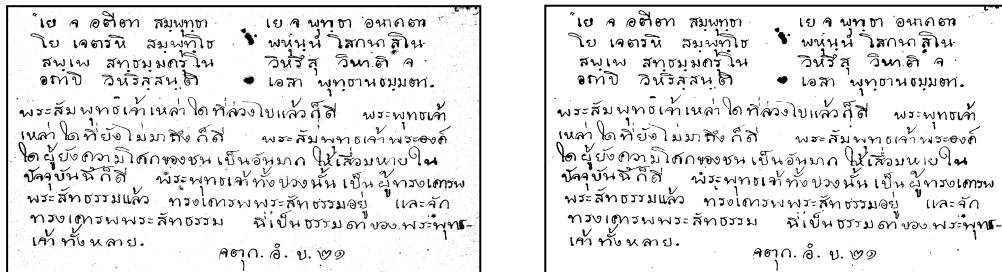 เย จ อตีตา สมฺพุทฺธา เย จ พุทฺธา อนาคตา
โย เจตรหิ สมฺพุทฺโธ พหุนฺนํ โสกนาสโน
สพฺเพ สทฺธมฺมครุโน วิหรึสุ วิหาติ จ
อถาปิ วิหริสฺสนฺติ เอสา พุทฺธานธมฺมตา.
พระสัมพุทธเจ้าเหล่าใดที่ล่วงไปแล้วก็ดี พระพุทธเจ้า
เหล่าใดที่ยังไม่มาถึงก็ดี พระสัมพุทธเจ้าพระองค์
ใดผู้ยังความโศกของชนเป็นอันมาก ให้เสื่อมหายใน
ปัจจุบันนี้ก็ดี พระพุทธเจ้าทั้งปวงนั้นเป็นผู้ทรงเคารพ
พระสัทธรรมแล้ว ทรงเคารพพระสัทธรรมอยู่ และจัก
ทรงเคารพพระสัทธรรม นี่เป็นธรรมดาของพระพุทธ-
เจ้าทั้งหลาย.
จตุก. อํ. บ. ๒๑
เย จ อตีตา สมฺพุทฺธา เย จ พุทฺธา อนาคตา
โย เจตรหิ สมฺพุทฺโธ พหุนฺนํ โสกนาสโน
สพฺเพ สทฺธมฺมครุโน วิหรึสุ วิหาติ จ
อถาปิ วิหริสฺสนฺติ เอสา พุทฺธานธมฺมตา.
พระสัมพุทธเจ้าเหล่าใดที่ล่วงไปแล้วก็ดี พระพุทธเจ้า
เหล่าใดที่ยังไม่มาถึงก็ดี พระสัมพุทธเจ้าพระองค์
ใดผู้ยังความโศกของชนเป็นอันมาก ให้เสื่อมหายใน
ปัจจุบันนี้ก็ดี พระพุทธเจ้าทั้งปวงนั้นเป็นผู้ทรงเคารพ
พระสัทธรรมแล้ว ทรงเคารพพระสัทธรรมอยู่ และจัก
ทรงเคารพพระสัทธรรม นี่เป็นธรรมดาของพระพุทธ-
เจ้าทั้งหลาย.
จตุก. อํ. บ. ๒๑